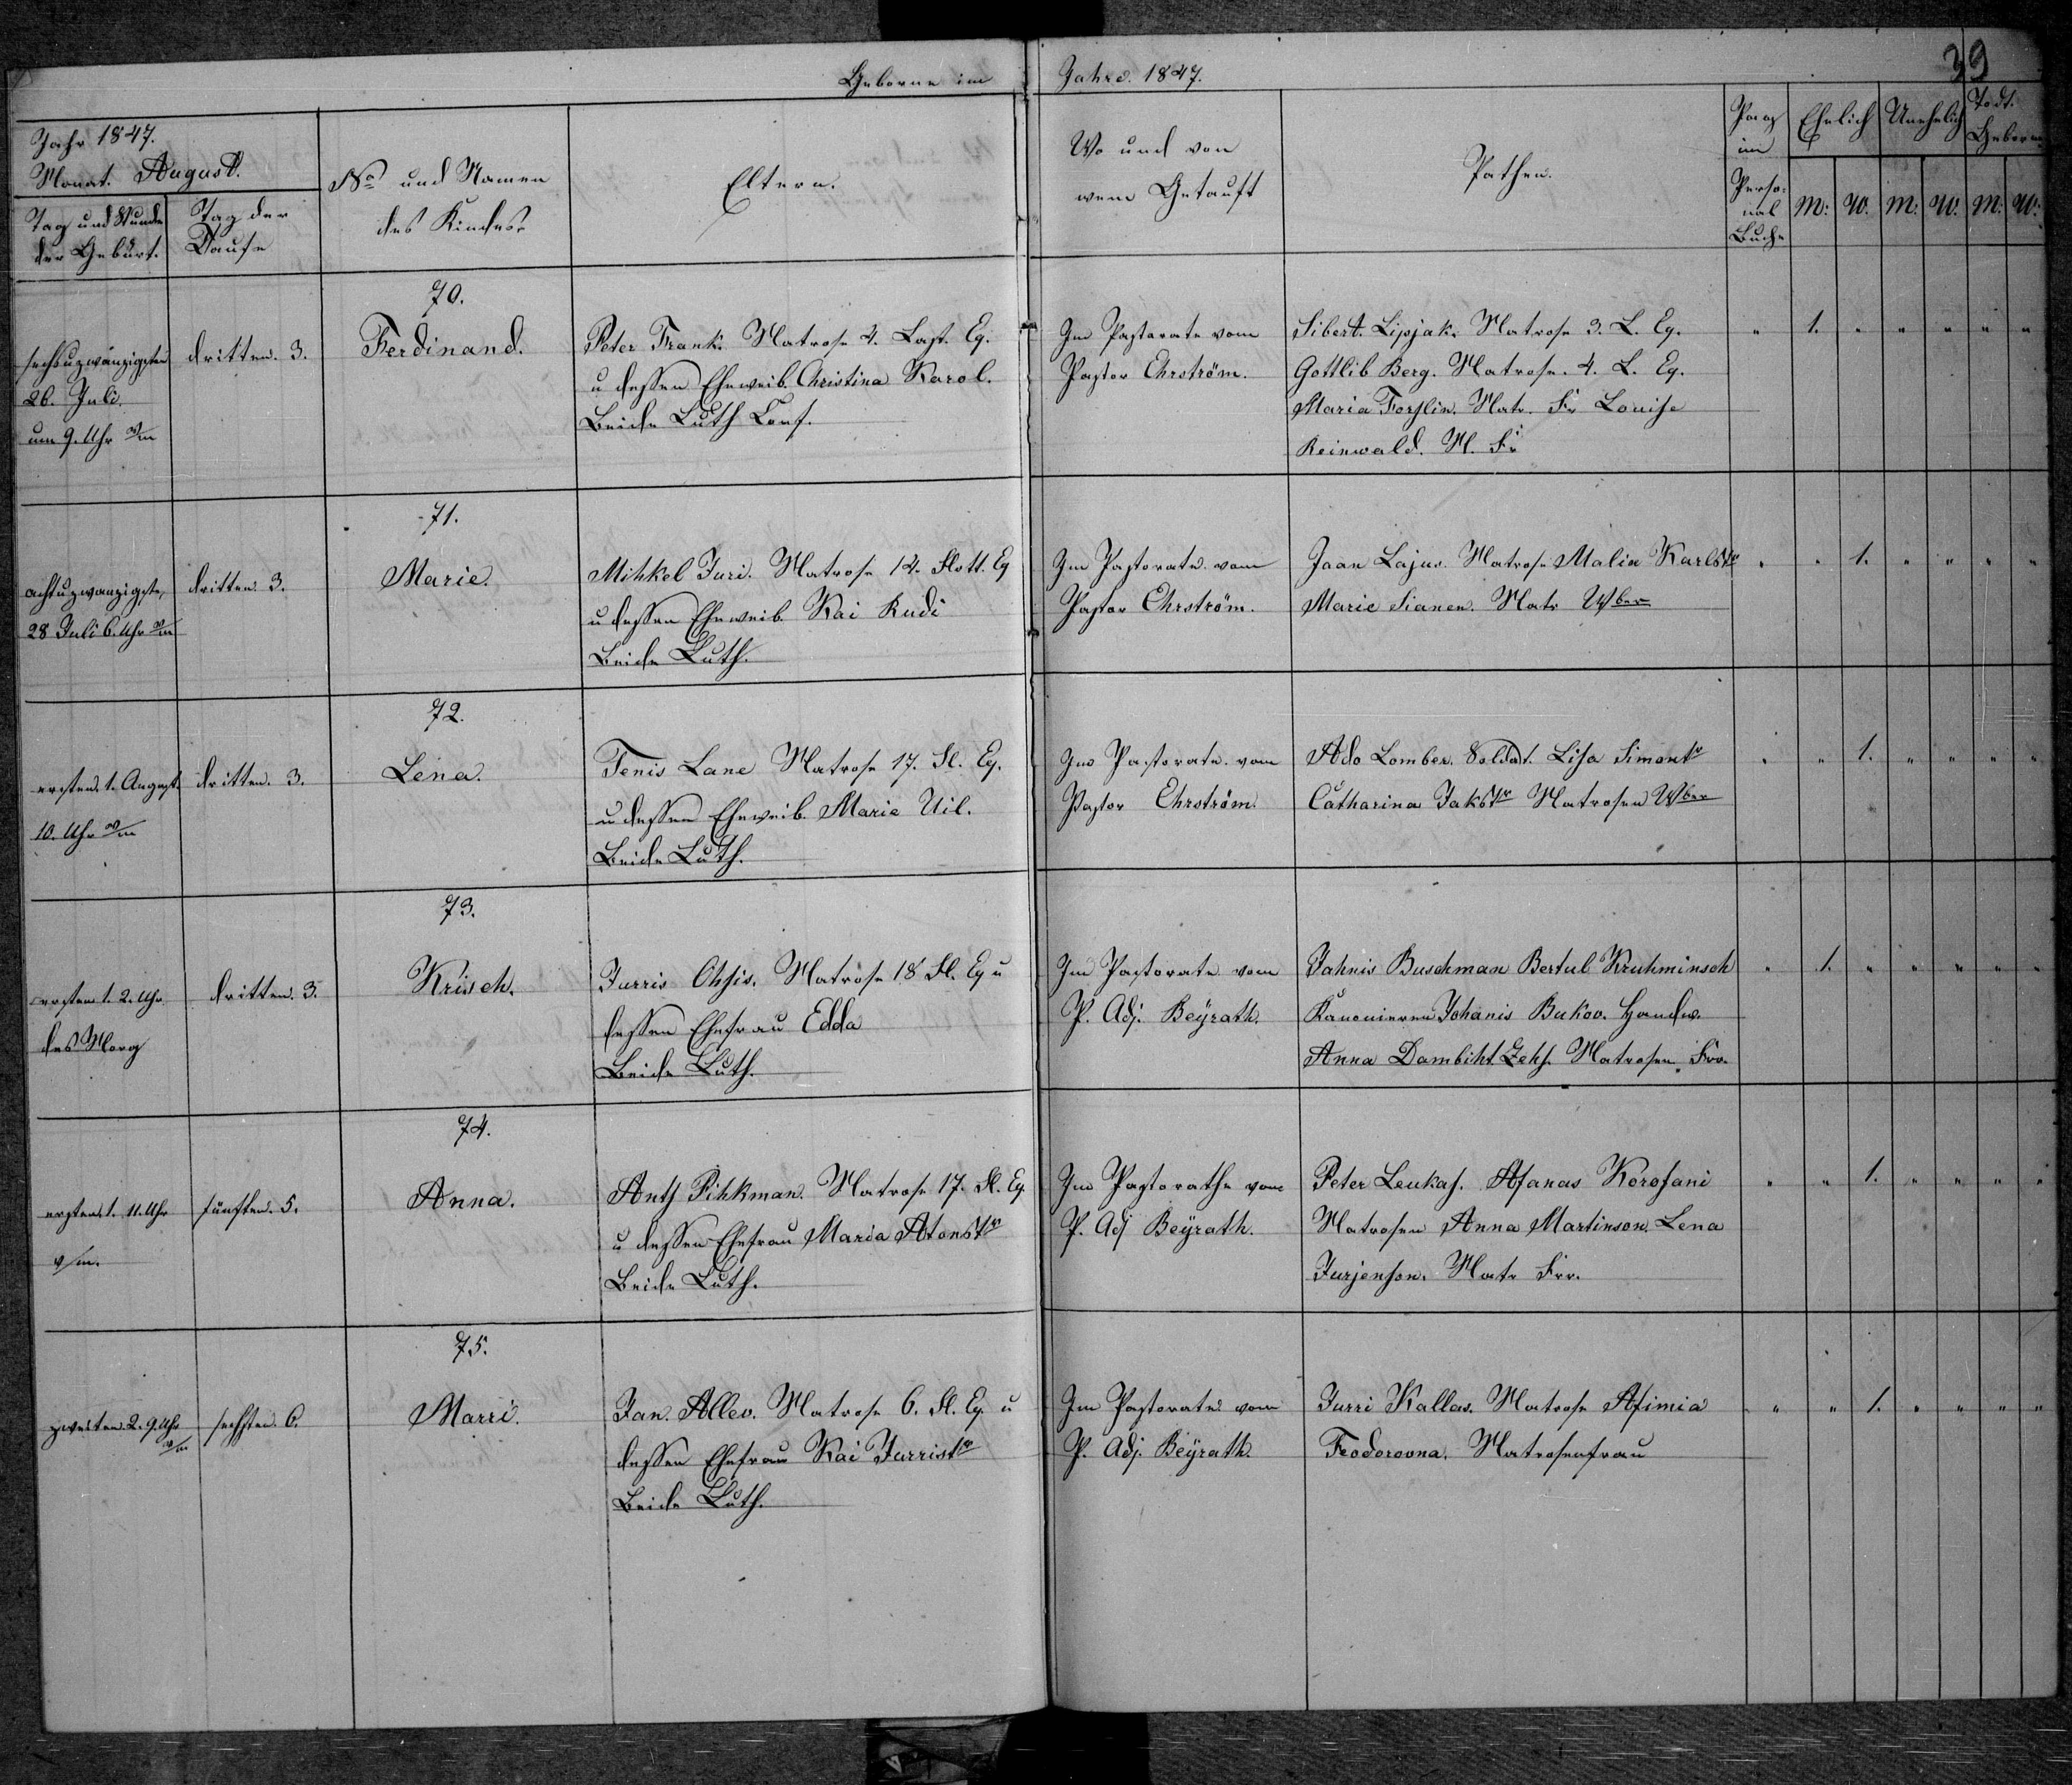 39
Geborne im Jahre 1847.
Jahr 1847.
Monat. August.
Tag und Stunde
der Geburt.
Tag der
Taufe
No und Namen
des Kindes
Eltern.
Wo und von
wem Getauft
Pathen.
Pag
im
Perso-
nal
Buche
Ehelich
Unehelich
Todt.
Geborne
M: W. M: W. M: W:
70.
sechsuzwanzigsten
26. Juli.
um 9. Uhr v/m
dritten. 3.
Ferdinand.
Peter Frank. Matrose 4. Last. Eq.
u dessen Eheweib. Christina Karol.
Beide Luth Conf.
Im Pastorate vom
Pastor Ehrström.
Sibert. Lipjak. Matrose 3. L. Eq.
Gottlib Berg. Matrose. 4. L. Eq.
Maria Forslin. Matr. Fr Louise
Reinwald. M. Fr
" 1. " " " " "
71.
achtuzwanzigste,
28 Juli 6. Uhr v/m
dritten 3.
Marie.
Mihkel Juri. Matrose 12. Flott. Eq
u dessen Eheweib. Kai Rudi
Beide Luth.
Im Pastorate vom
Pastor Ehrström.
Jaan Lajus. Matrose Malin Karlstr
Marie Sianen. Matr Wber
" " 1. " " " "
72.
ersten. 1. August.
10. Uhr v/m
dritten. 3.
Lena.
Tenis Lane Matrose 17. Fl. Eq.
u dessen Eheweib. Marie Uil.
Beide Luth.
Im Pastorate vom
Pastor Ehrström.
Ado Lomber. Soldat. Lisa Simontr
Catharina Jakstr Matrosen Wber
" " 1. " " " "
73.
ersten 1. 2. Uhr.
des Morg
dritten. 3.
Krisch.
Jurris Ohsis. Matrose 18 Fl. Eq u
dessen Ehefrau Edda
Beide Luth.
Im Pastorate vom
P. Adj. Beyrath.
Jahnis Buschman Bertul Kruhminsch
Kanonieren Johanis Bukov. Handw.
Anna Dambiht. Zehs. Matrosen Frr.
" 1. " " " " "
74.
ersten. 1. 11. Uhr
v/m.
fünften. 5.
Anna.
Ants Pihkman. Matrose 17. Fl. Eq
u dessen Ehefrau Maria Atonstr
Beide Luth.
Im Pastorathe vom
P. Adj Beyrath.
Peter Leukas. Afanas Korosani
Matrosen Anna Martinson. Lena
Jurjenson. Matr Frr.
" " 1. " " " "
75.
zweiten. 2. 9. Uhr
v/m
sechsten. 6.
Marri.
Jan. Allev. Matrose 6. Fl. Eq. u
dessen Ehefrau Kai Jurristr
Beide Luth.
Im Pastorate vom
P. Adj. Beyrath.
Jurri Kallas. Matrose Afimia
Feodorovna. Matrosenfrau
" " 1. " " " "